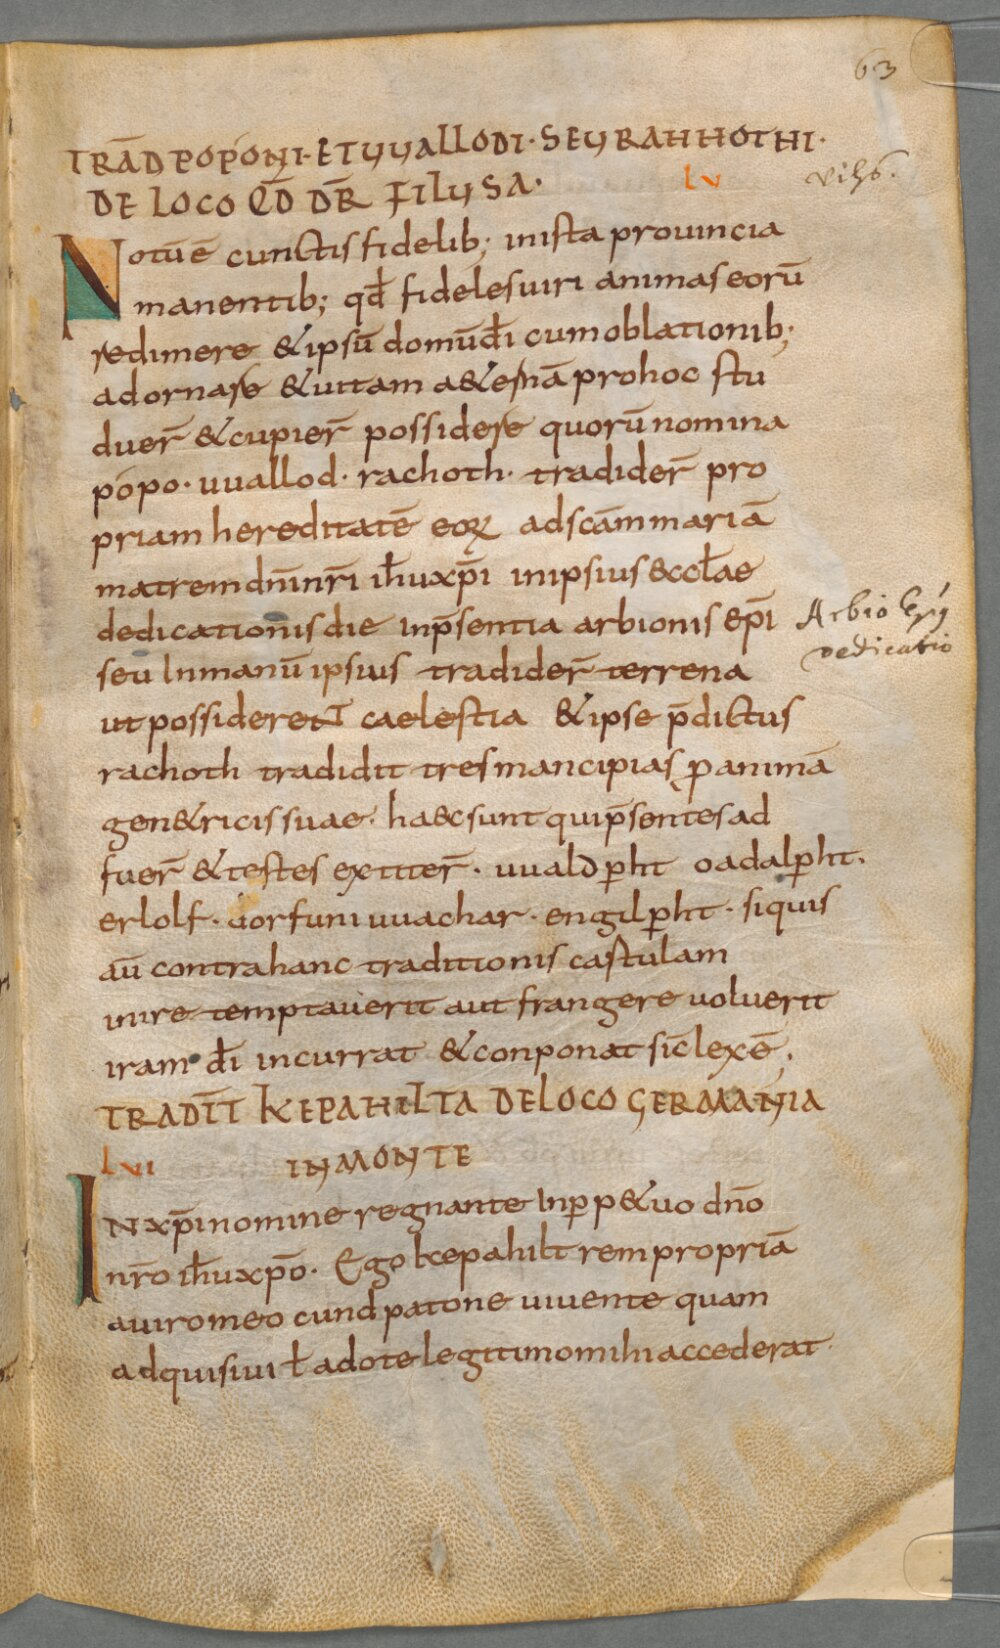 63
TRAD̄ POPONI · ET UUALLODI · SEU RAHHOTHI ·
DE LOCO QD̄ DR̄ FILUSA · LV
vihs.
Notū ē cunctis fidelib; in ista prouincia
manentib; qđ fideles uiri animas eorū
redimere & ipsū domū dī cum oblationib;
adornare & uitam a&ernā pro hoc stu
duer̄ & cupier̄ possidere quorū nomina
pópo · uuallod · rachoth · tradider̄ pro
priam hereditatē eoꝝ ad scām mariā
matrem dn̄i nr̄i ih̄u xp̄i in ipsius &ccl̄ae
dedicationis die in p̄sentia arbionis ep̄i
Arbio Ep̄s
dedicatio
seu In manū ipsius tradider̄ terrena
ut possiderent caelestia & ipse p̄dictus
rachoth tradidit tres mancipias ꝓ animā
gen&ricis suae · haec sunt qui p̄sentes ad
fuer̄ & testes extiter̄ · uualdꝑht oadalꝑht ·
erlolf · dorfuni uuachar · engilꝑht · siquis
aū contra hanc traditionis castulam
inire temptauerit aut frangere uoluerit
iram dī incurrat & conponat sic̄ lex ē ·
TRADIT̄ KEPAHILTA DE LOCO GERMANIA
LVI IN MONTE
IN xp̄i nomine regnante In ꝑp&uo dn̄o
nr̄o ih̄u xp̄o · Ego kepahilt rem propriā
a uiro meo cundpatone uiuente quam
adquisiui ł a dote legitimo mihi accederat ·